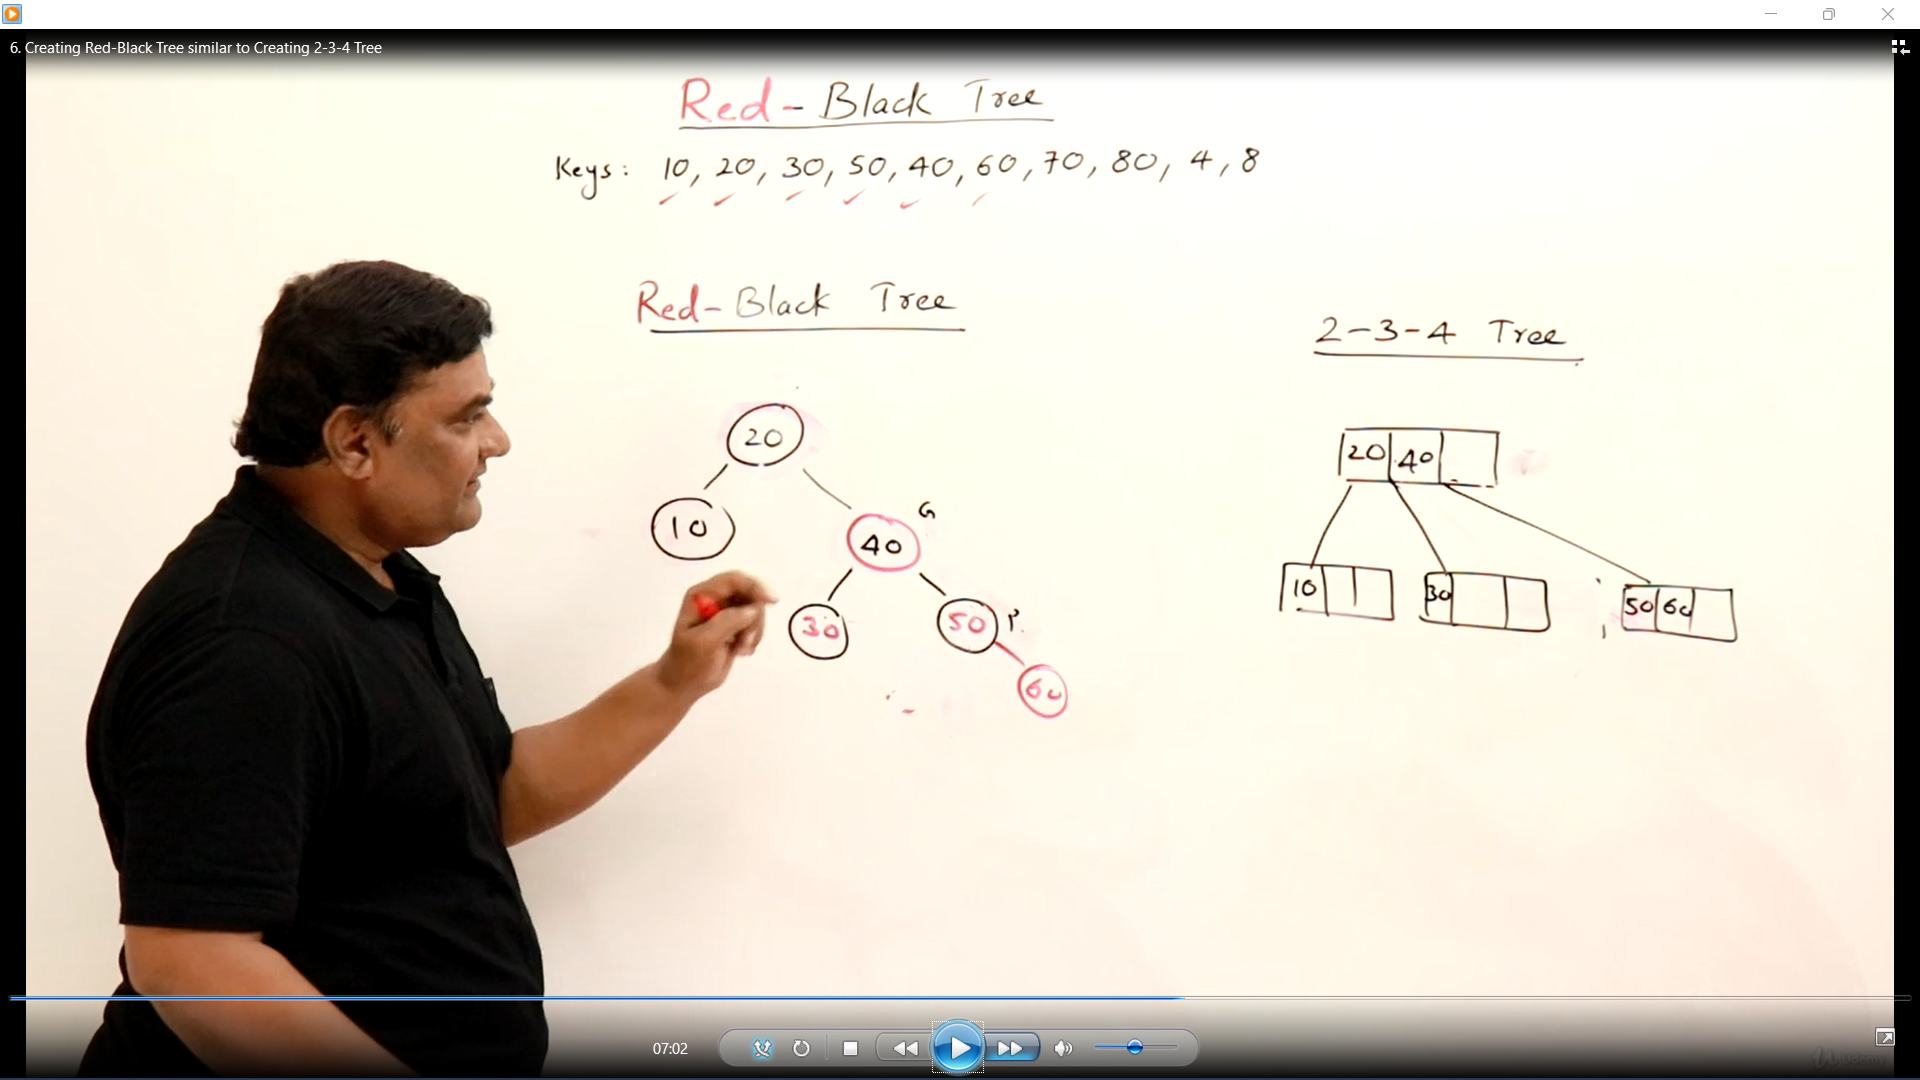 6. Creating Red-Black Tree similar to Creating 2-3-4 Tree
Red-Black Tree
Keys: 10, 20, 30, 50, 40, 60, 70, 80, 4, 8
Red-Black Tree
20
10
40 G
30
50 P
60
2-3-4 Tree
20 40
10
30
50 60
07:02
Udemy